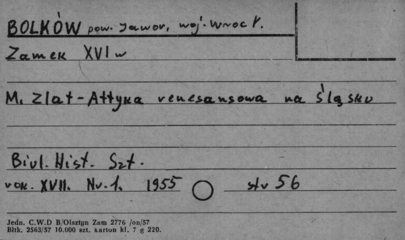 BOLKÓW pow. Jawor, woj. Wrocł.
Zamek XVI w
M. Zlat - Attyka renesansowa na Śląsku
Biul. Hist. Szt.
rok. XVII. Nr. 1. 1955 str 56
Jedn. C.W.D B/Olsztyn Zam 2776 /on/57
Bltk. 2563/57 10.000 szt. karton kl. 7 g 220.